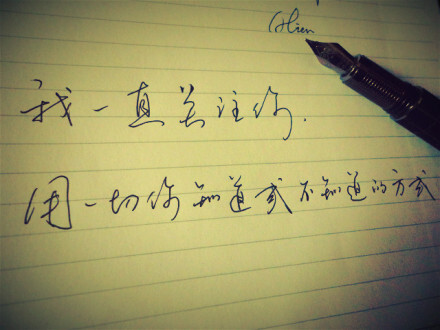 我一直关注你.
用一切你知道或不知道的方式